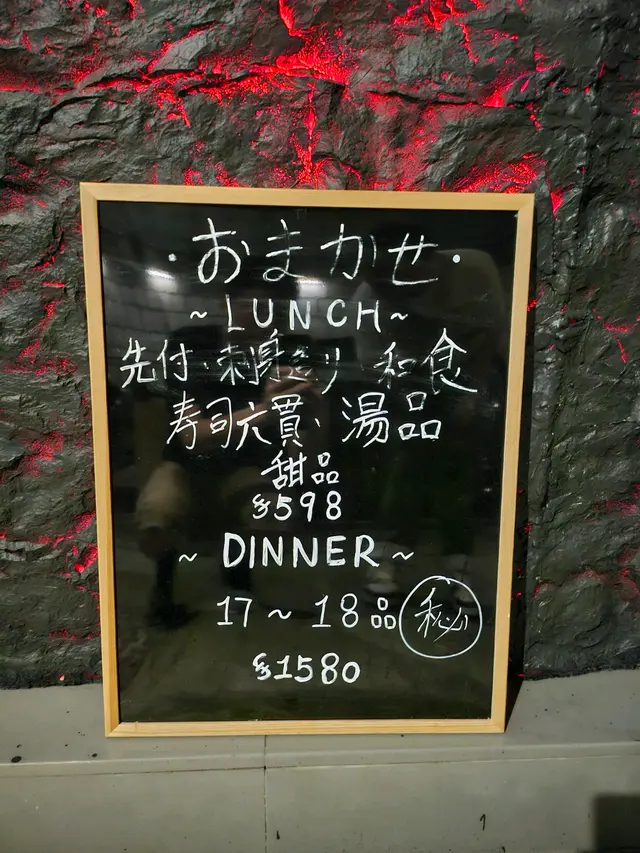 ・おまかせ・
~LUNCH~
先付・刺身造り 和食
寿司六貫、湯品
甜品
$598
~ DINNER ~
17~18品 秘
$1580